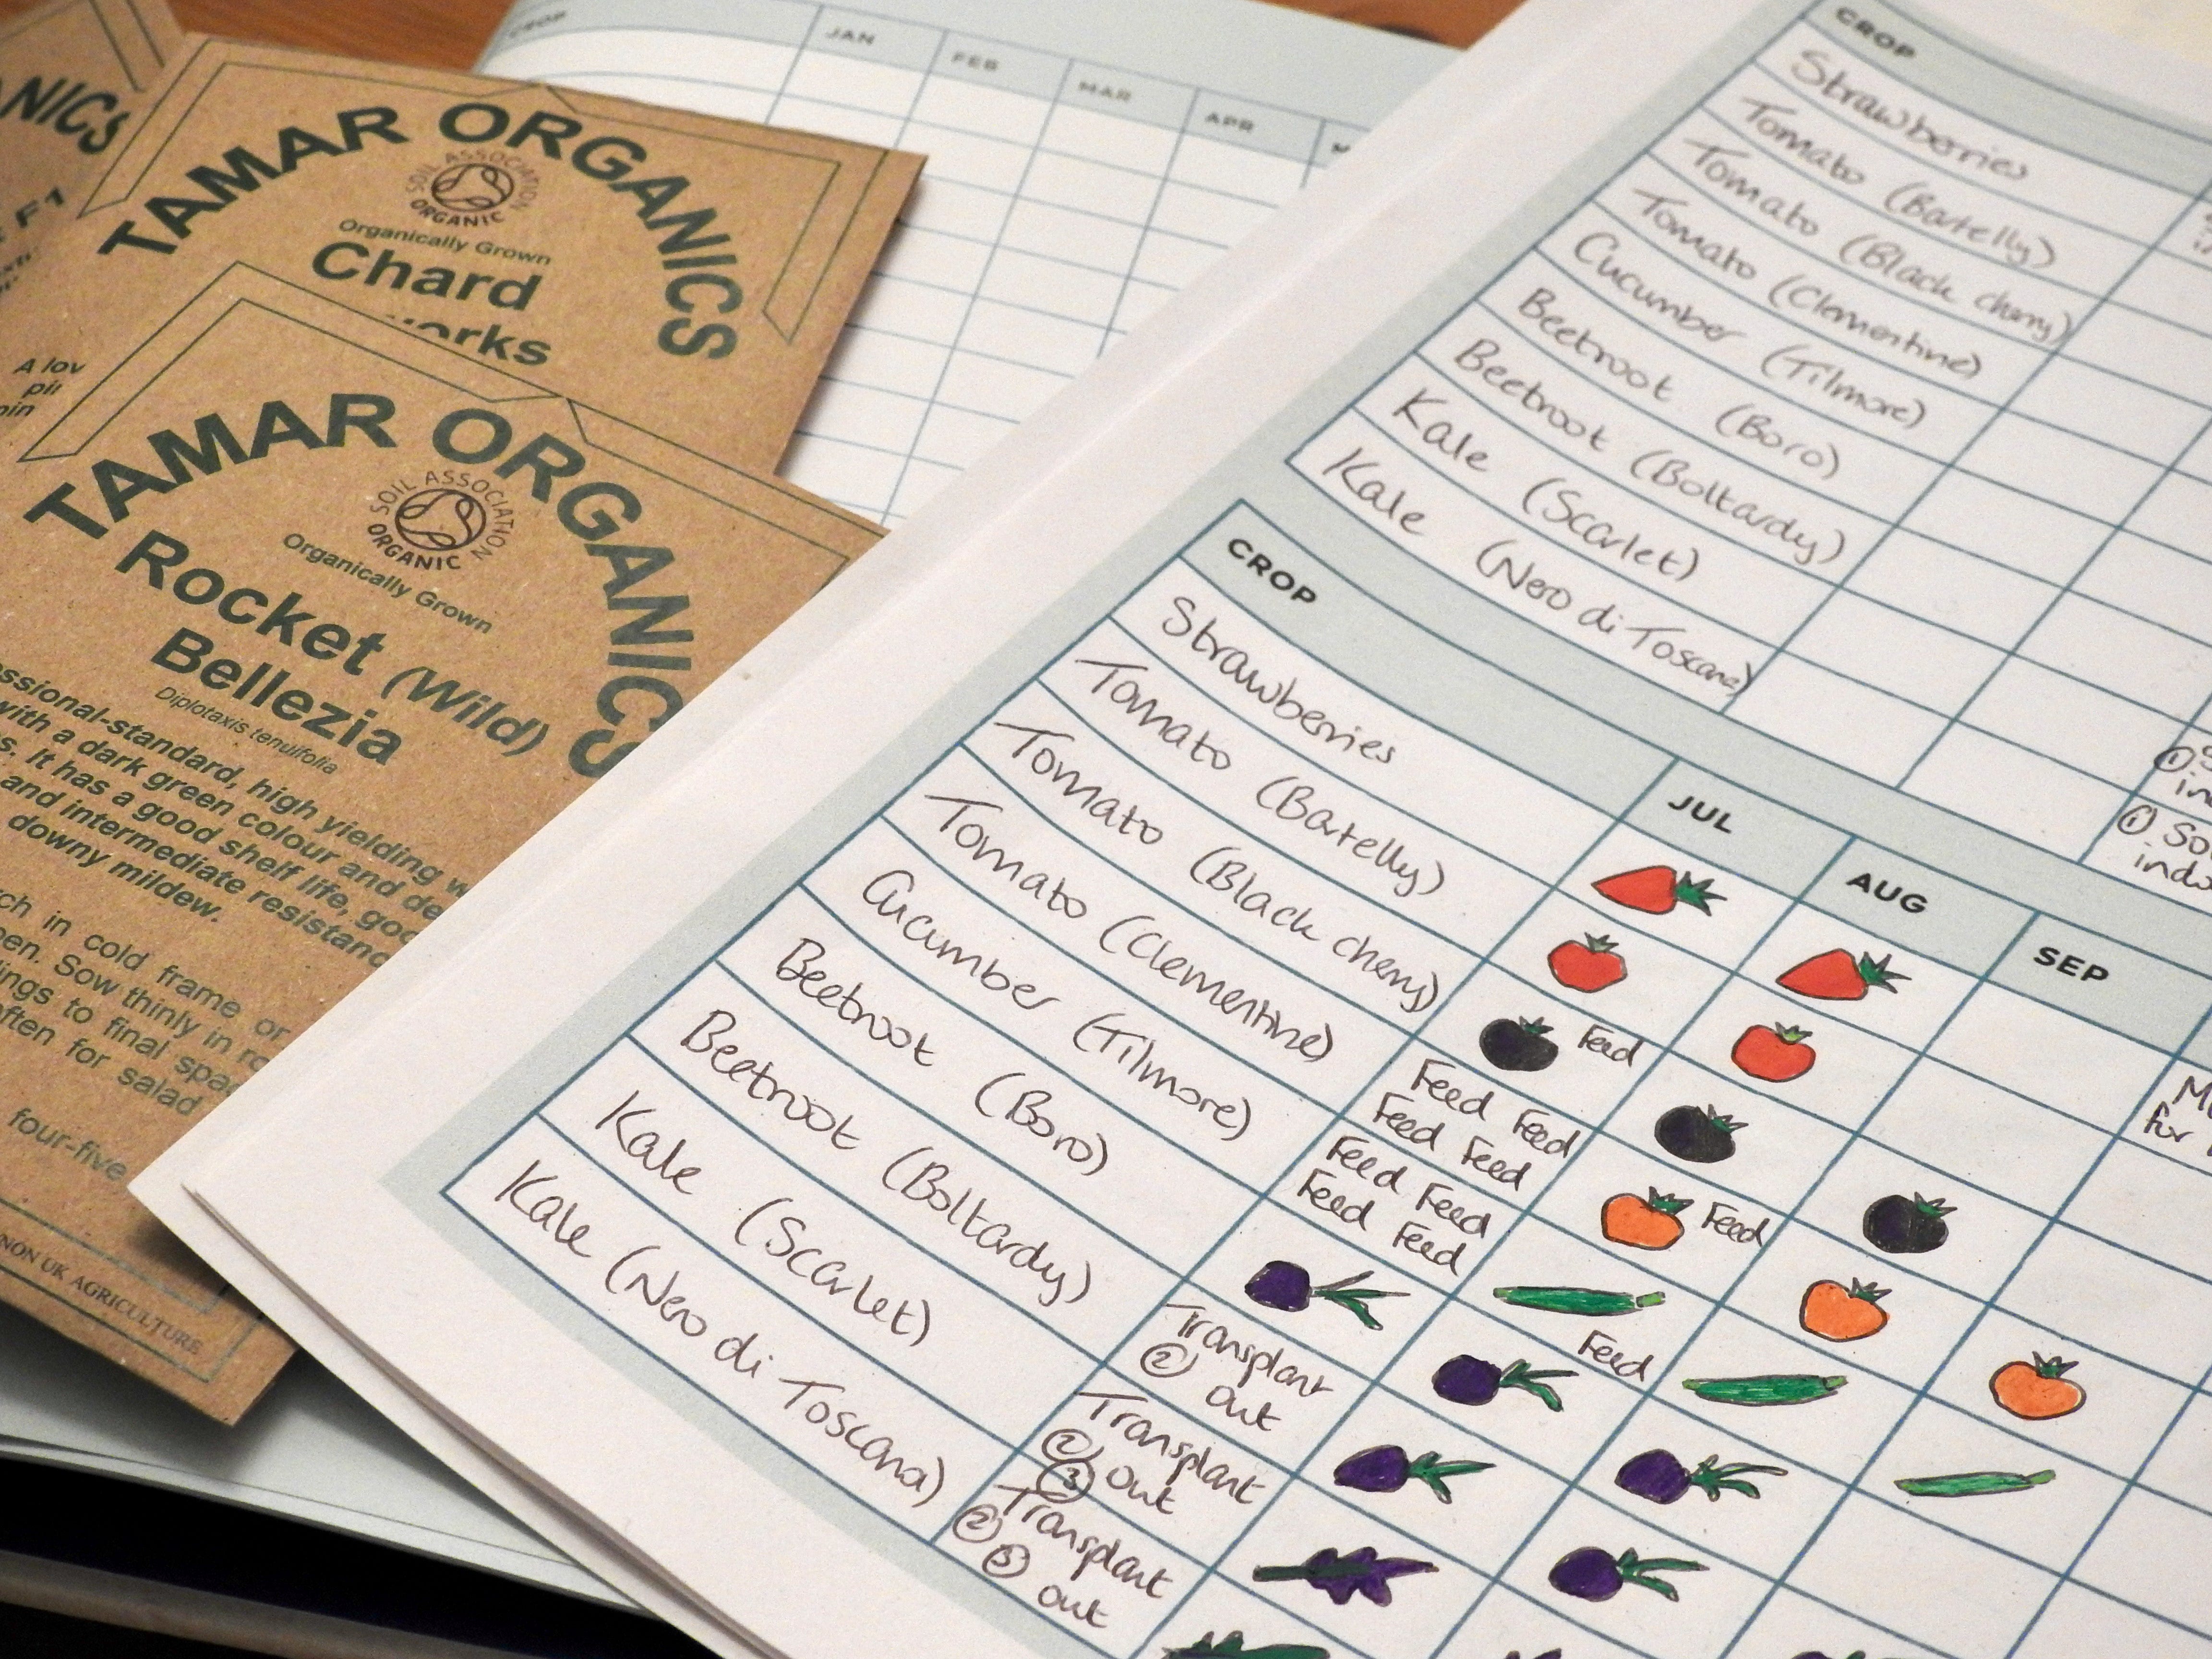 ANICS
F1
A lov
pin
min
TAMAR ORGANICS
SOIL ASSOCIATION
ORGANIC
Organically Grown
Chard
TAMAR ORGANICS
SOIL ASSOCIATION
ORGANIC
Organically Grown
Rocket (Wild)
Bellezia
Diplotaxis tenuifolia
ssional-standard, high yielding w
with a dark green colour and de
s. It has a good shelf life, good
and intermediate resistanc
downy mildew.
ch in cold frame or
pen. Sow thinly in ro
ings to final spac
often for salad
four-five
NON UK AGRICULTURE
CROP JAN FEB MAR APR M
CROP
Strawberries
Tomato (Bartelly)
Tomato (Black cherry)
Tomato (Clementine)
Cucumber (Tilmore)
Beetroot (Boro)
Beetroot (Boltardy)
Kale (Scarlet)
Kale (Nero di Toscana)
① S
in
① So
indo
CROP JUL AUG SEP
Strawberries
Tomato (Bartelly)
Tomato (Black cherry) Feed
Tomato (Clementine) Feed Feed
Feed Feed Feed
Cucumber (Tilmore) Feed Feed
Feed Feed Feed
Beetroot (Boro)
Beetroot (Boltardy) Transplant
② out
Kale (Scarlet) Transplant
② ③ out
Kale (Nero di Toscana) Transplant
② ③ out
Mu
for